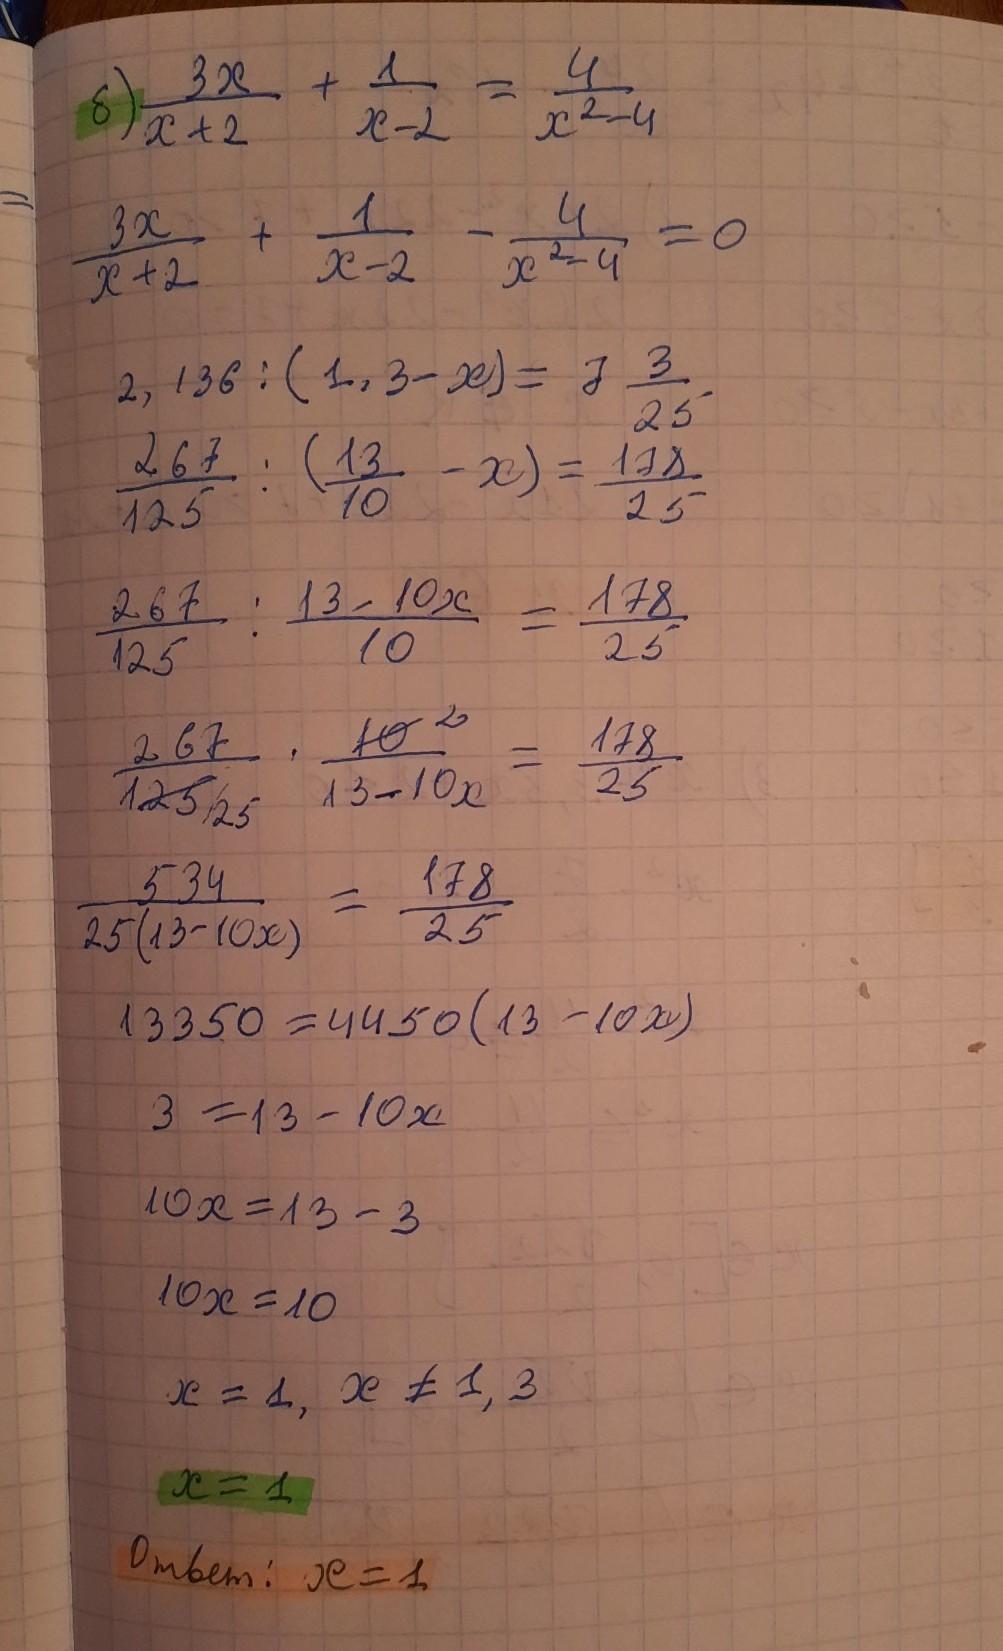 б) 3x/(x+2) + 1/(x-2) = 4/(x²-4)
3x/(x+2) + 1/(x-2) - 4/(x²-4) = 0
2,136 : (1,3-x) = 7 3/25
267/125 : (13/10 - x) = 178/25
267/125 : (13-10x)/10 = 178/25
267/125/25 · 10 2/(13-10x) = 178/25
534/(25(13-10x)) = 178/25
13350 = 4450(13-10x)
3 = 13-10x
10x = 13-3
10x = 10
x = 1, x ≠ 1,3
x = 1
Ответ: x = 1
=